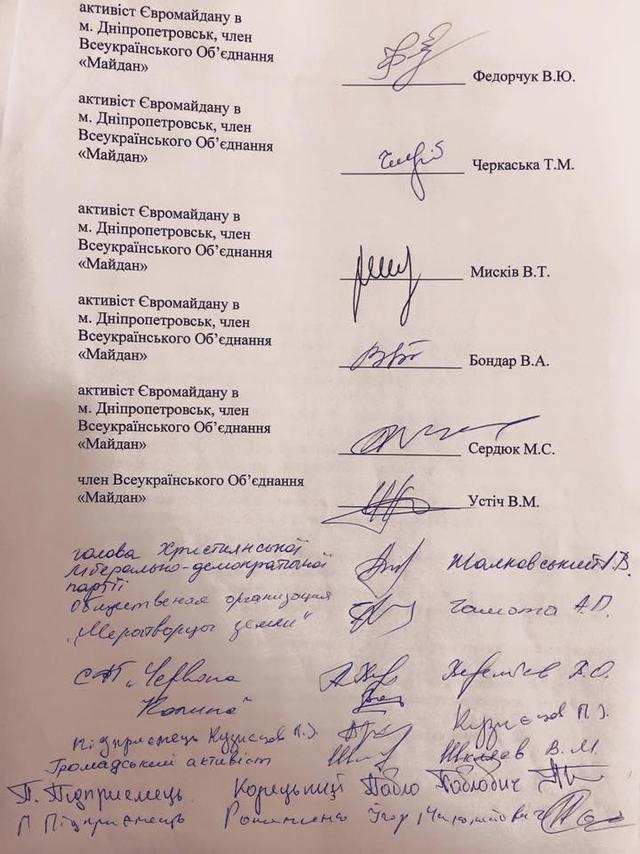 активіст Євромайдану в
м. Дніпропетровськ, член
Всеукраїнського Об’єднання
«Майдан» Федорчук В.Ю.
активіст Євромайдану в
м. Дніпропетровськ, член
Всеукраїнського Об’єднання
«Майдан» Черкаська Т.М.
активіст Євромайдану в
м. Дніпропетровськ, член
Всеукраїнського Об’єднання
«Майдан» Мисків В.Т.
активіст Євромайдану в
м. Дніпропетровськ, член
Всеукраїнського Об’єднання
«Майдан» Бондар В.А.
активіст Євромайдану в
м. Дніпропетровськ, член
Всеукраїнського Об’єднання
«Майдан» Сердюк М.С.
член Всеукраїнського Об’єднання
«Майдан» Устіч В.М.
голова Християнської
ліберально-демократичної
партії
Общественная организация
А.П.
"Червона
Калина"
Підприємець Кузнєцов П.І. Кузнєцов П.І.
Громадський активіст В.М.
П. Підприємець Корецький Павло Павлович
П Підприємець Ігор